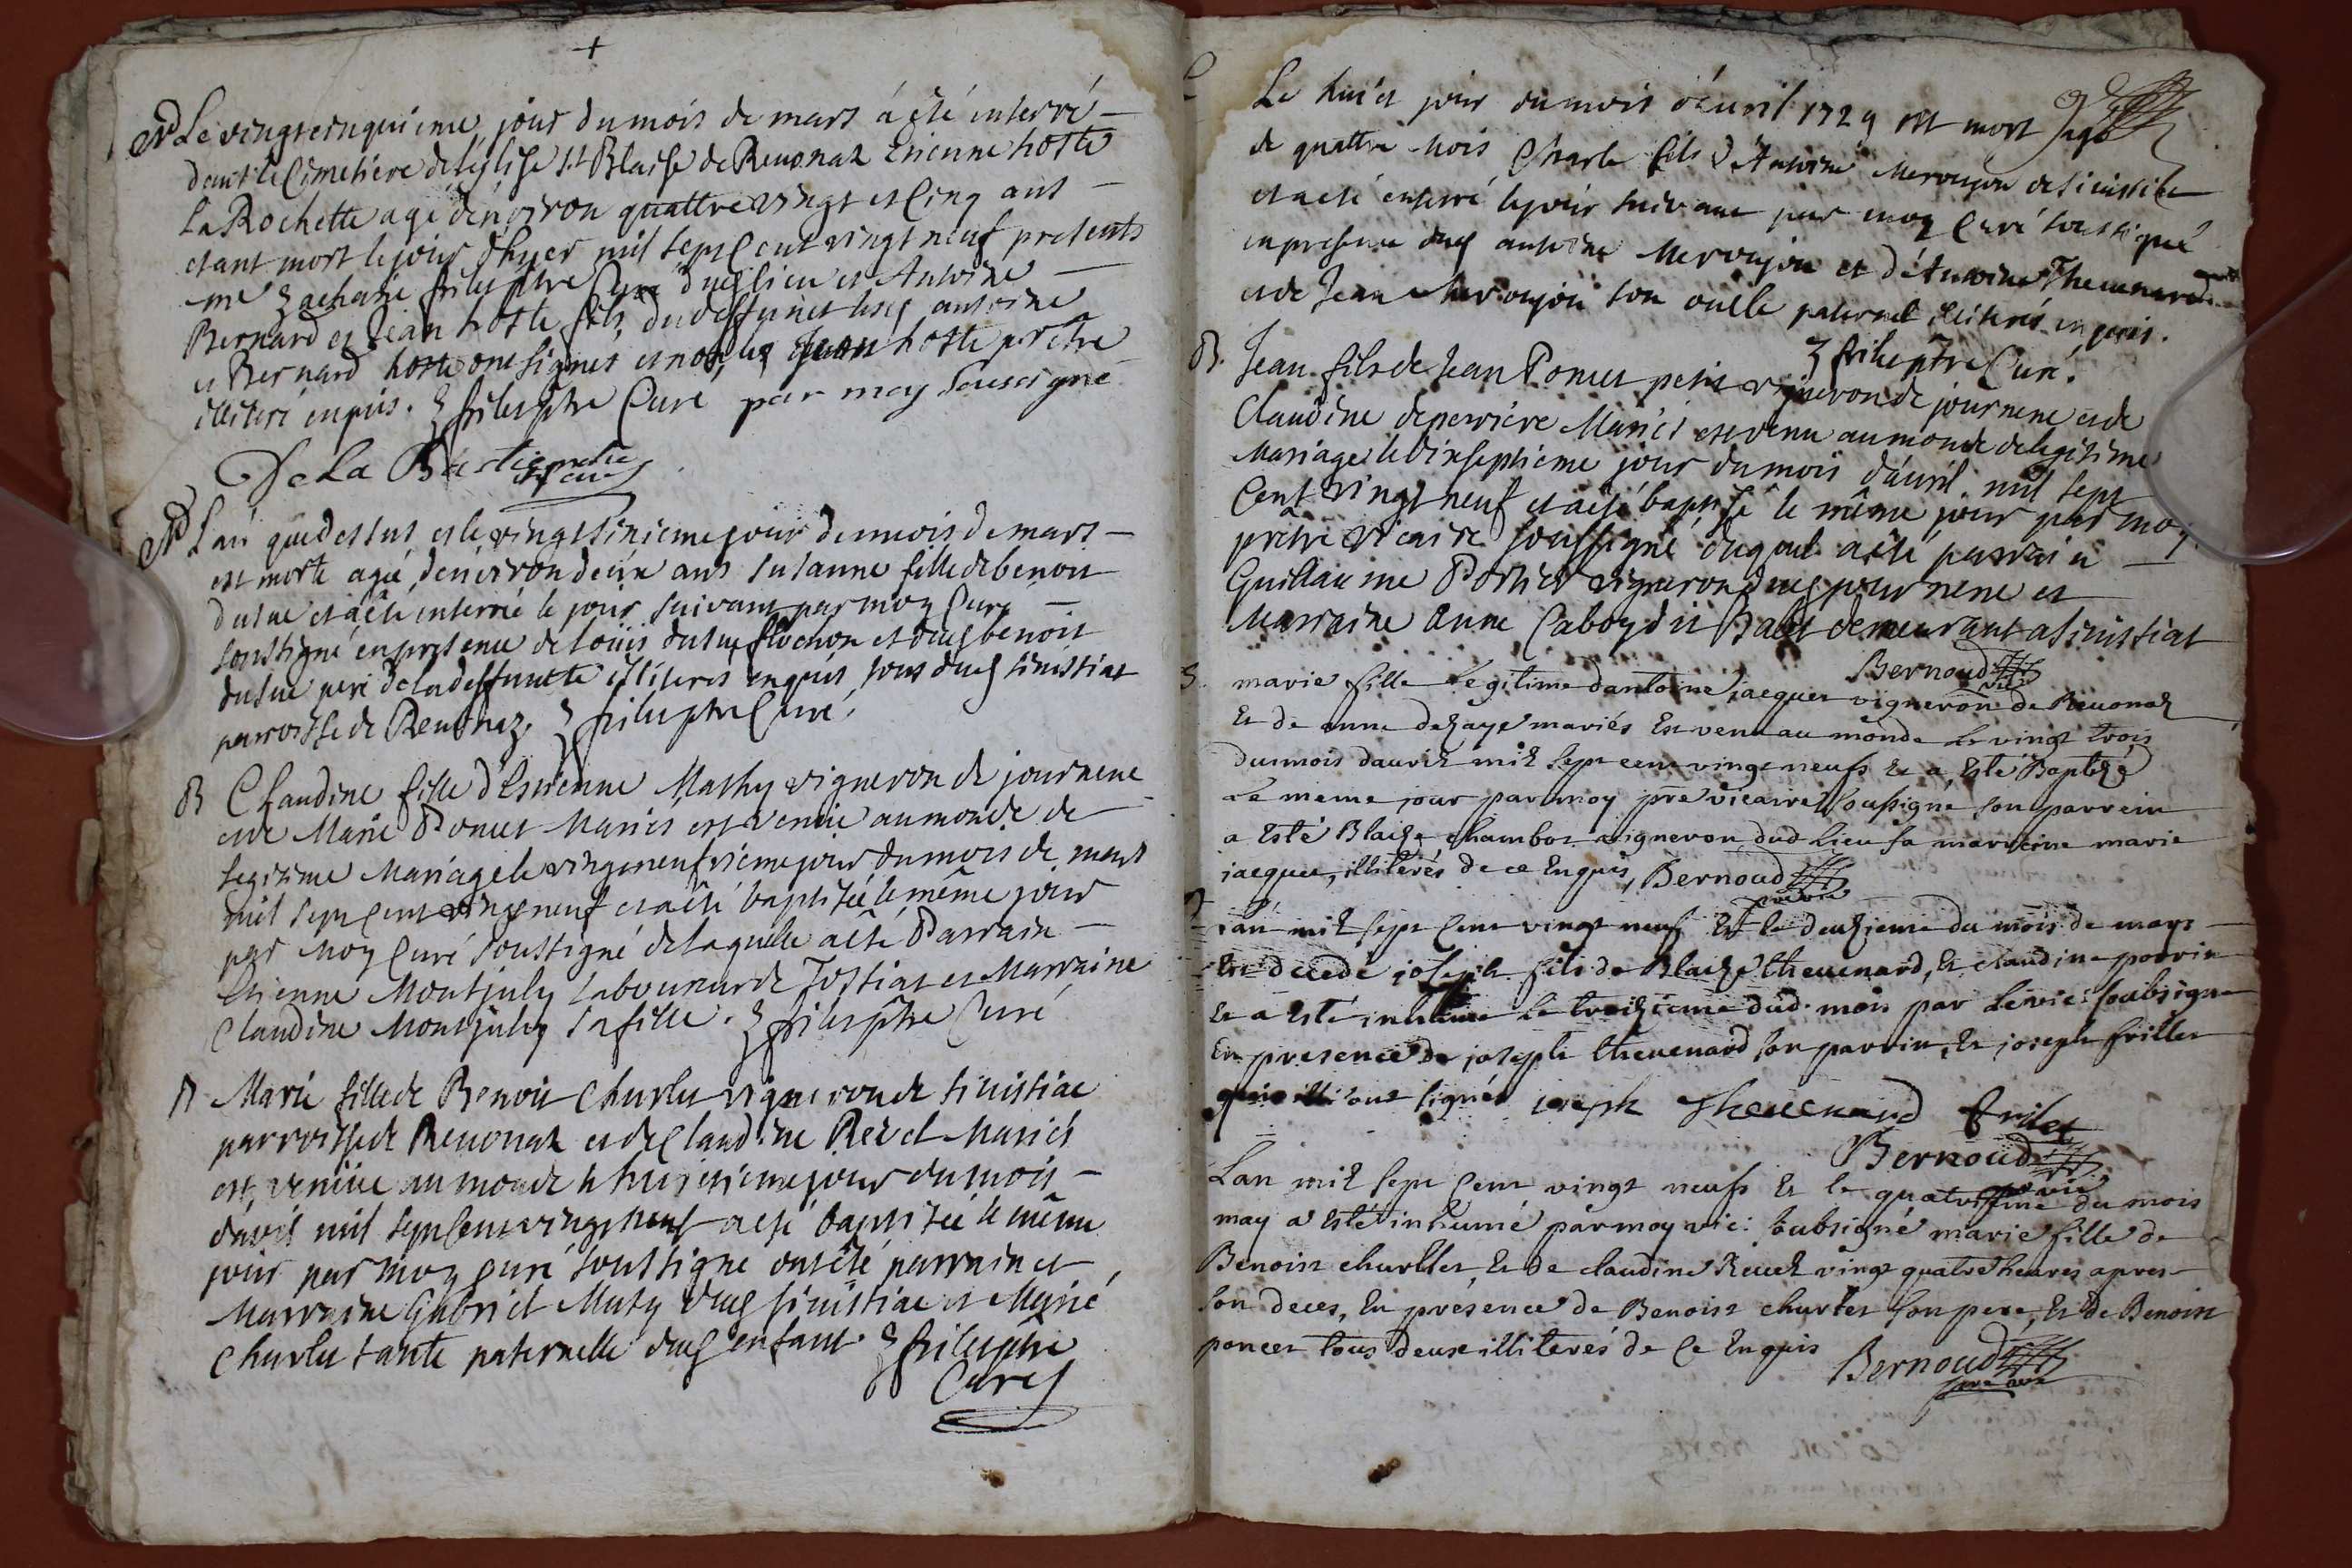 +
Le vingt cinquieme jour du mois de mars à été enterré
dans le Cimetiére de l'église st Blaise de Reuonaz Etienne hoste
La Rochette agé d'enviro̅n quattre vingt et Cinq ans
etant mort le jour d'hyer mil sept Cent vingt neuf presents
me Zacharie frilet ptre Curé dud lieu et Antoine
Bernard et Jean hoste fils du deffunct lesq antoine
et Bernard hoste ont signés et non led Jean hoste
illiteré enquis. Z frilet ptre Curé par moy soussigné
De La Bastie
L'an que dessus et le vingt sixieme jour du mois de mars
est morte agée d'environ deux ans susanne fille de benoit
dusue et a été enterrée le jour suivant par moy Curé
soussigné en presence de Louis dusue et dud benoit
dusue pere de la deffuncte illiterés enquis tous dud sinissiat
parroisse de Reuonaz. Z frilet ptre Curé.
B Claudine fille d'Estienne Mathy vigneron de journene
et de Marie Poncet Mariés est venüe au monde de
legitime Mariage le vingt neufvieme jour du mois de mars
mil sept Cent vingt neuf et a été baptisée le même jour
par Moy Curé soussigné de laquelle a été Parrain
Etienne Montjuly laboureur de Tossiat et Marraine
Claudine Montjuly sa fille. Z frilet ptre Curé
B Marie fille de Benoit Churlet vigneron de sinissiac
parroisse de Reuonaz et de Claudine Revel Mariés
est venüe au monde le huictieme jour du mois
d'avril mil sept Cent vingt neuf a été baptisée le même
jour par moy curé soussigné ont été parrain et
Marraine Gabriel Muty dud sinissiac et Marie
Churlet tante paternelle dud enfant Z frilet ptre
Curé
Le huict jour du mois d'avril 1729 est mort agé
de quattre Mois Charle fils d'Antoine Meroujou de sinissiat
et a été enterré le jour suivant par moy Curé soussigné
en presence dud antoine Meroujou et d'Antoine Theuenard
et de Jean Meroujou son oncle paternel illiterés enquis.
Z frilet ptre Curé.
B. Jean fils de Jean Poncet petit vigneron de journene et de
Claudine deperriére Mariés est venu au monde de legitime
Mariage le dixseptieme jour du mois d'avril mil sept
Cent vingt neuf et a été baptisé le même jour par moy
prêtre vicaire soussigné duquel a été parrain
Guillaume Portier vigneron dud journene et
Marraine Anne Caboz dit demeurant a sinissiat
Bernoud vic
marie fille Legitime dantoine jacquet vigneron de Reuonaz
Et de anne dezaye mariés Est venu au monde le vingt trois
du mois dauril mil sept cent vingt neufs Et a Esté Baptizé
Le meme jour par moy pre vicaire soussigné son parrein
a Esté Blaize chambos vigneron dud Lieu sa marreine marie
jacquet, illiterés de ce Enquis, Bernoud
lan mil sept Cent vingt neuf Et le deuzieme du mois de mays
Est décédé joseph fils de Blaize theuenard, Et claudine
Et a Esté inhumé Le troizieme dud. mois par Le vic: soubsigné
En presence de joseph theuenard son parrin, Et joseph frillet
qui ont signés joseph Theuenard frilet
Bernoud
Lan mil sept Cent vingt neufs Et le quatrieme du mois
may a Esté inhumé par moy vic: soubsigné marie fille de
Benoist churllet, Et de claudine Reuel vingt quatre heures apres
son deces, En presence de Benoist churlet son pere, Et de Benoist
poncet tous deux illiterés de Ce Enquis
Bernoud